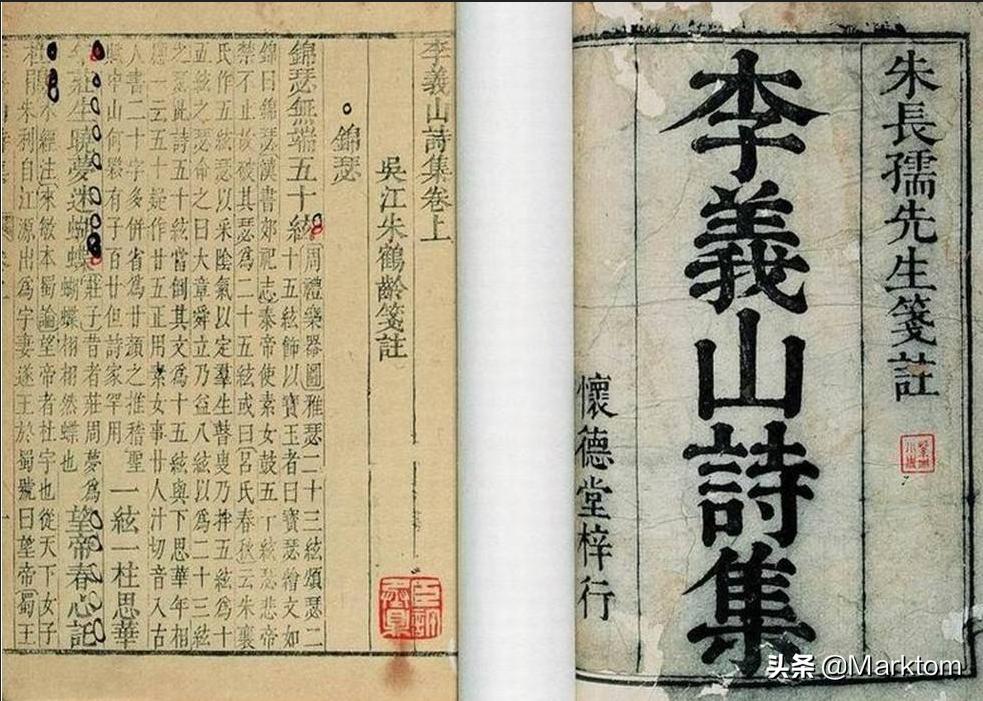 朱長孺先生箋註
李義山詩集
懷德堂梓行
李義山詩集卷上
吳江朱鶴齡箋註
錦瑟
錦瑟無端五十絃周禮樂器圖雅瑟二十三絃頌瑟二
十五絃飾以寶玉者曰寶瑟繪文如
錦曰錦瑟漢書郊祀志泰帝使素女鼓五十絃瑟悲帝
禁不止故破其瑟為二十五絃或曰呂氏春秋云朱襄
氏作五絃瑟以采陰氣以定羣生瞽叟乃拌五絃為十
五絃之瑟命之曰大章舜立乃益八絃以為二十三絃
之瑟此詩五十絃當倒其文為十五絃與下思華年相
應一云五十疑作廿五正用素女事廿人汁切音入古
人書二十字多併省為廿顏之推稽聖
賦中山何夥有子百廿但詩家罕用
一絃一柱思華
年莊生曉夢迷蝴蝶莊子昔者莊周夢為
蝴蝶栩栩然蝶也
望帝春心託
杜鵑水經注來敏本蜀論望帝者杜宇也從天下女子
朱利自江源出為宇妻遂王於蜀號曰望帝蜀王
头条 @Marktom